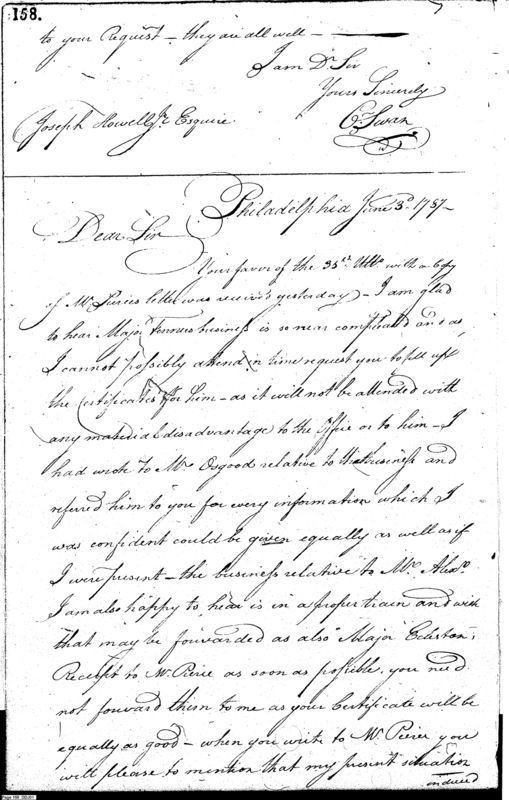 158.
to your Request – they are all well –
I am Dr Sir
Yours Sincerely
C. Swan
Joseph Howell Jr Esquire
Philadelphia June 3d. 1787 –
Dear Sir
Your favor of the 31st Ulto. with a Copy
of Mr. Pierces letter was receiv'd yesterday – I am glad
to hear Major business is so near compleated and as
I cannot possibly attend in time request you to fill up
the certificates for him – as it will not be attended with
any material disadvantage to the Office or to him – I
had wrote to Mr Osgood relative to that business and
referred him to you for every information which I
was confident could be given equally as well as if
I were present – the business relative to Mr. Alexr.
I am also happy to hear is in a proper train and wish
that may be forwarded as also Major Ecleston,
Receipt to Mr Pierce as soon as possible, you need
not forward them to me as your Certificate will be
equally as good – when you write to Mr Pierce you
will please to mention that my present situation